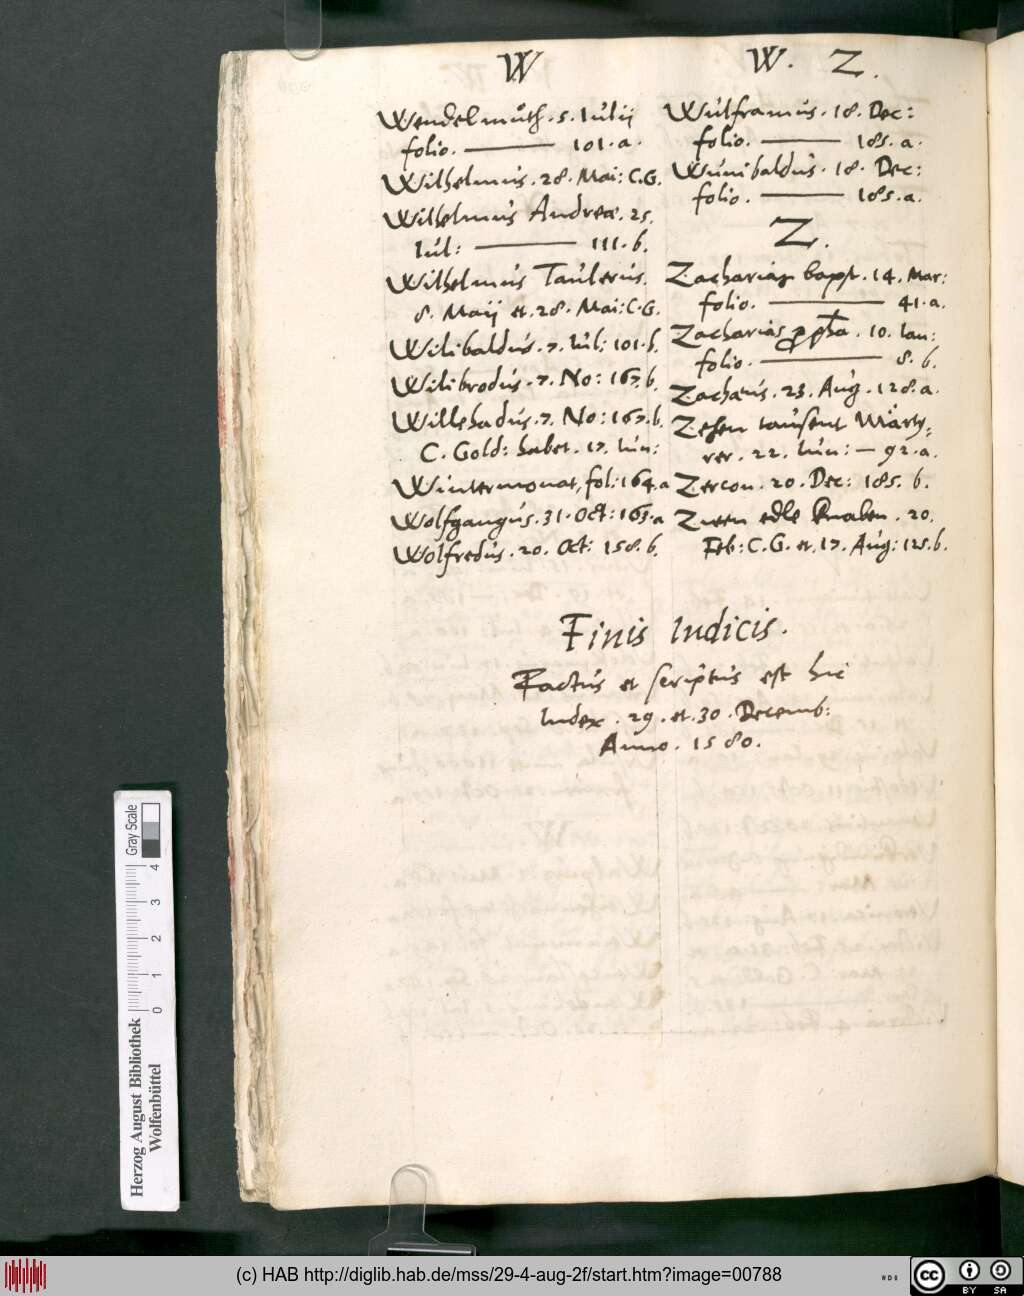 W
Wendelmůth. 5. Iulij
folio. ——— 101. a.
Wilhelmus. 28. Mai: C.G.
Wilhelmus Andreæ. 25.
Iul: ——— 111. b.
Wilhelmus Taulerus.
8. Maij et. 28. Mai: C.G.
Wilibaldus. 7. Iul: 101. b.
Wilibrodus. 7. No: 167. b.
Willehadus. 7. No: 167. b.
C. Gold: habet. 17. Iun:
Wintermonat, fol: 164. a
Wolfgangus. 31. Oct: 163. a
Wolfredus. 20. Oct: 158. b.
W. Z.
Wulframus. 18. Dec:
folio. ——— 185. a.
Wunibaldus. 18. Dec:
folio. ——— 185. a.
Z.
Zacharias bapt. 14. Mar:
folio. ——— 41. a.
Zacharias ppha. 10. Ian:
folio. ——— 8. b.
Zachæus. 23. Aug. 128. a.
Zehen tausent Märty=
rer. 22. Iun: — 92. a.
Zercon. 20. Dec: 185. b.
Zween edle Knaben. 20.
Feb: C.G. et. 17. Aug: 125. b.
Finis Indicis.
Factus et scriptus est hic
Index. 29. et. 30. Decemb:
Anno. 1580.
Herzog August Bibliothek
Wolfenbüttel
0 1 2 3 4
Gray Scale
(c) HAB http://diglib.hab.de/mss/29-4-aug-2f/start.htm?image=00788
cc BY SA